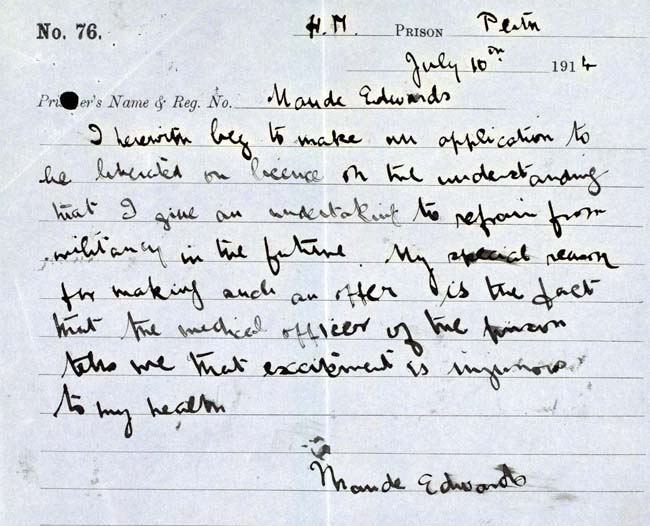 No. 76.
H.M. PRISON Perth
July 10th 1914
Prisoner's Name & Reg. No. Maude Edwards
I herewith beg to make an application to
be liberated on licence on the understanding
that I give an undertaking to refrain from
militancy in the future. My special reason
for making such an offer is the fact
that the medical officer of the prison
tells me that excitement is injurious
to my health
Maude Edwards